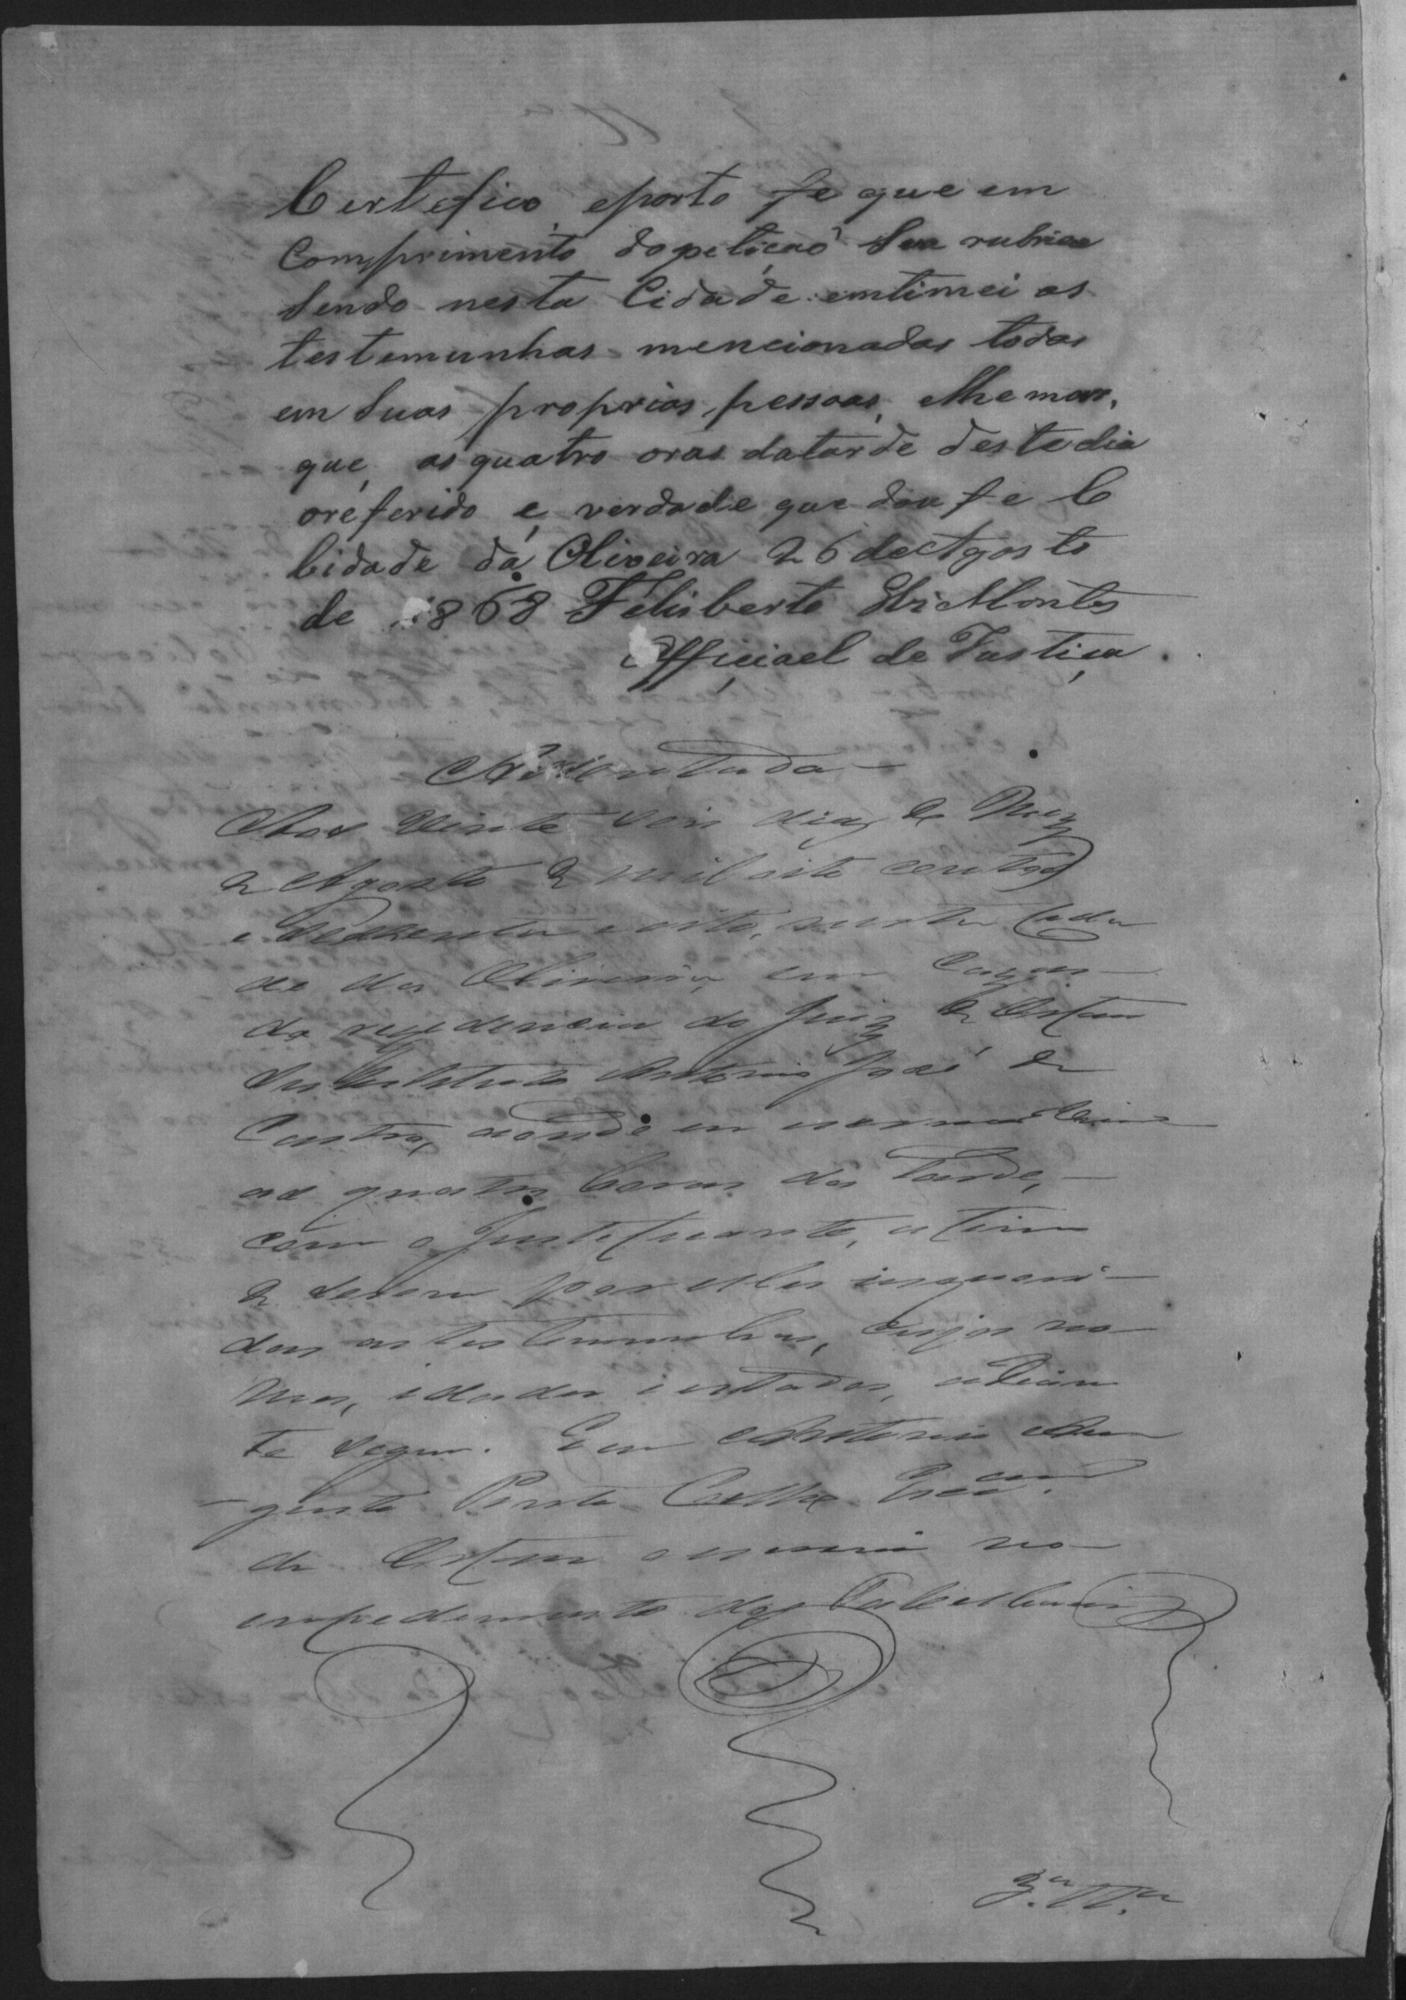 Certefico, eporto fe que em
Comprimento dapeticaõ Sua rubrica
Sendo nesta Cidade emtimei as
testemunhas mencionadas todas
em Suas proprias pessoas, elhe mar,
que, asquatro oras datarde destedia
oreferido é verdade que dou fe C
Cidade da Oliveira 26 deAgosto
de 1868 Felisberto Montes
Officiael de Justiça.
Assentada
Aos vinte seis dias do Mez
de Agosto de mil oito centos
e sessenta e oito, nesta Cida
de da Oliveira, em Cazas
da rezidencia do Juiz de Orfaõs
Substituto Antonio José de
Castro, aonde eu escrivaõ vim
as quatro horas da tarde,
com o Justificante, a fim
de serem por elles inqueri
das as testemunhas, cujos no
mes, idades e estados, adian
te seguem. Eu Antonio Au
gusto Pinto Coelho Escam.
de Orfaõs o escrevi no
empedimento do Tabelliaõ